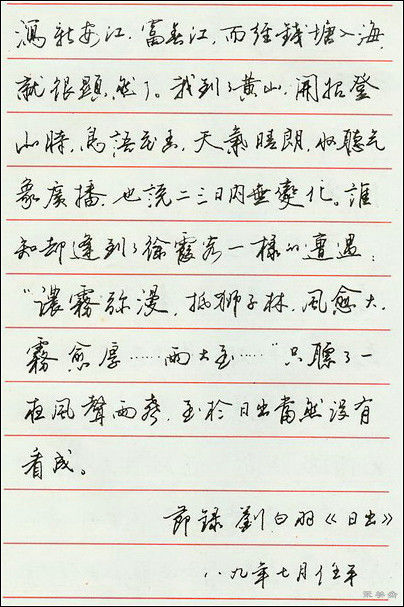 瀉新安江,富春江,而经錢塘入海,
就很顯然了。我到了黄山,開始登
山時,鳥語花香,天氣晴朗,收聽气
象廣播,也説二三日内無變化。誰
知却逢到了徐霞客一樣的遭遇:
“濃霧弥漫,抵獅子林,風愈大,
霧愈厚……雨大至……”只聽了一
夜風聲雨聲,至於日出當然没有
看成。
節録 劉白羽《日出》
八九年七月任平